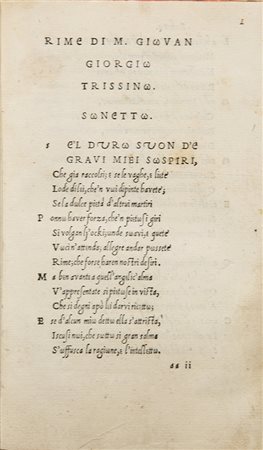 RIME DI M. GIωVAN
GIORGIω
TRISSINω.
SωNETTω.
s ε'L DURω SUON D'ε
GRAVI MIεI SωSPIRI,
Che gia raccolsi; ε se le vaghe, ε
Lode di lui, che'n vui dipinte havete;
Se la dulce pietà d'altrui martiri
P onnω haver forza, che'n pietωsi giri
Si volgan ωcchi; unde suavi, ε quete
Vωci n'attinde; allegre andar pωssete
Rime; che forse haren nostri desiri.
M a ben avanti a quell'angelic'alma
V'appresentate sì pietωse in vista,
Che si degni apω lεi darvi ricettω;
E se d'alcun miω dettω ella s'attrista,
Iscusi nui, che sωttω sì gran salma
S'ωffusca la ragiωne, ε l'intellεttω.
aa ii